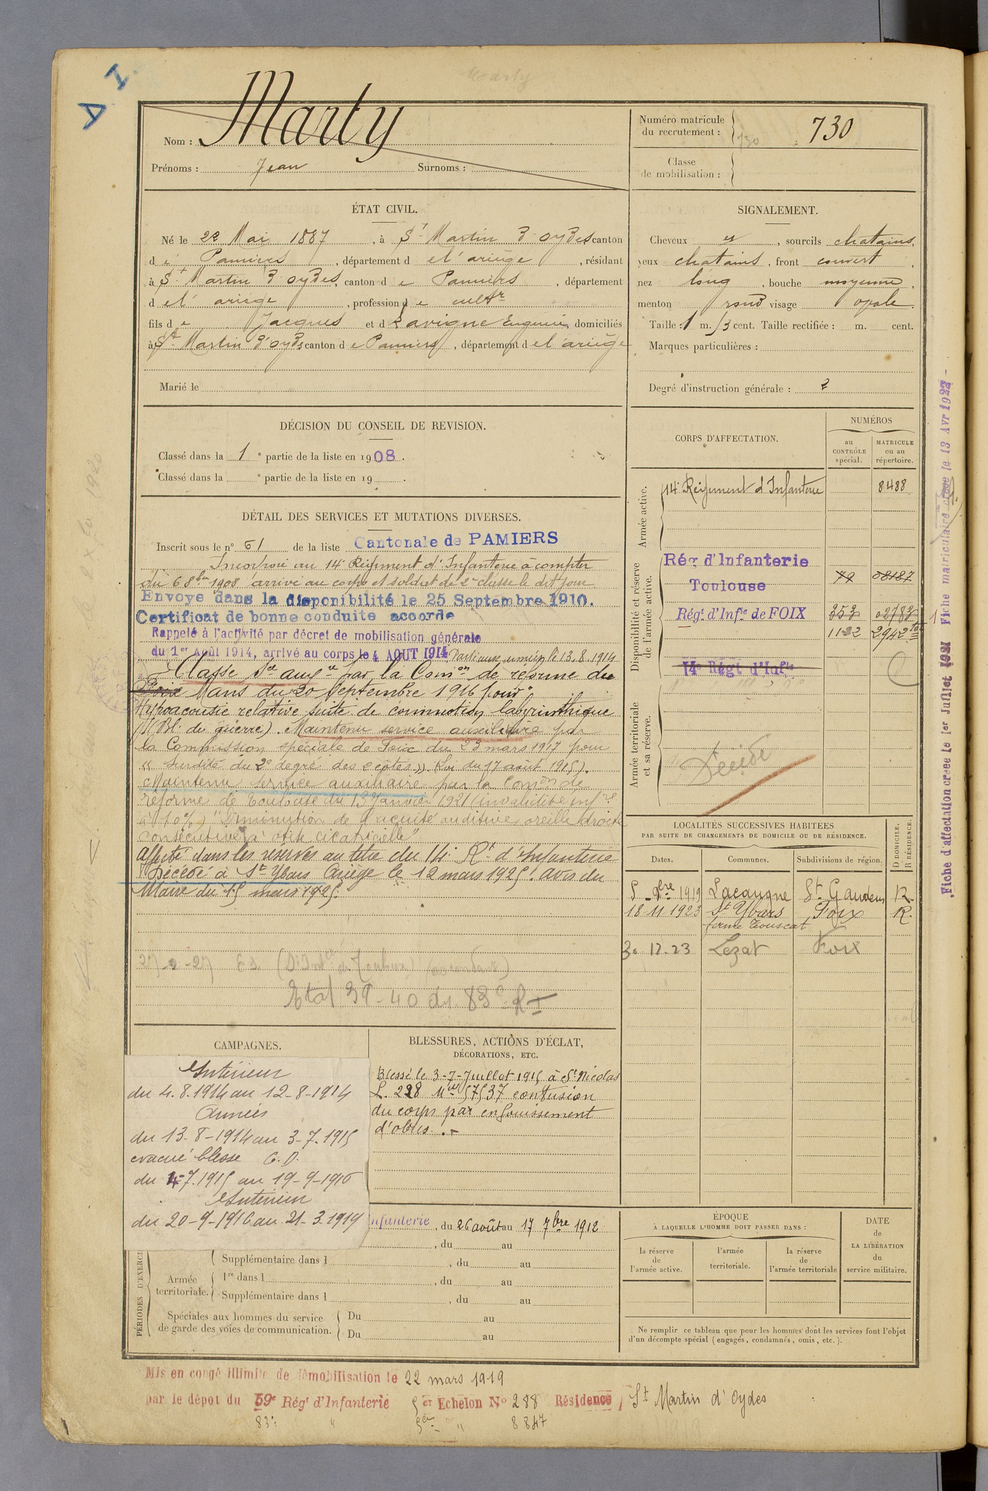 Marty
Nom : Marty
Prénoms : Jean Surnoms :
Numéro matricule du recrutement : 730
Classe de mobilisation :
ÉTAT CIVIL.
Né le 22 Mai 1887, à St Martin d'oydes canton
de Pamiers, département de l'ariège, résidant
à St Martin d'oydes, canton de Pamiers, département
de l'ariège, profession de cultr
fils de Jacques et de Lavigne Eugénie domiciliés
à St Martin d'oydes canton de Pamiers, département de l'ariège
Marié le
SIGNALEMENT.
Cheveux sourcils chatains,
yeux chatains, front couvert,
nez long, bouche moyenne,
menton rond visage ovale.
Taille : 1 m. cent. Taille rectifiée : m. cent.
Marques particulières :
Degré d'instruction générale : 2
DÉCISION DU CONSEIL DE REVISION.
Classé dans la 1e partie de la liste en 1908.
Classé dans la e partie de la liste en 19
DÉTAIL DES SERVICES ET MUTATIONS DIVERSES.
Inscrit sous le n° 61 de la liste Cantonale de PAMIERS
Incorporé au 14e Régiment d'Infanterie à compter
du 6 8bre 1908 arrivé au corps et soldat de 2e classe le dit jour
Envoyé dans la disponibilité le 25 Septembre 1910.
Certificat de bonne conduite accordé
Rappelé à l'activité par décret de mobilisation générale
du 1er Août 1914, arrivé au corps le 4 AOUT 1914 Parti aux armées le 13.8.1914
Classé Sce auxre par la Comon de réforme de
Foix Mans du 20 Septembre 1916 pour
Hypoacousie relative suite de commotion labyrinthique
(Bl. de guerre). Maintenu service auxiliaire par
la Commission spéciale de Foix du 23 mars 1917 pour
« surdité du 2e degré des 2 côtés ». (Loi du 17 août 1915).
Maintenu service auxiliaire par la Comon de
réforme de Toulouse du 13 Janvier 1921 (invalidité infre
à 10%) "Diminution de l'acuité auditive oreille droite
consécutive à otite cicatricielle"
Affecté dans les réserves au titre du 14e Rt d'Infanterie
Décédé à St Ybars Ariège le 12 mars 1925. Avis du
Maire du 15 mars 1925.
Etat 39-40 du 83e RI
CORPS D'AFFECTATION.
NUMÉROS
au CONTRÔLE spécial.
MATRICULE ou au répertoire.
Armée active.
14e Régiment d'Infanterie 8488
Disponibilité et réserve de l'armée active.
Rég d'Infanterie
Toulouse
Rég. d'Infie de FOIX 353
1122
14e Régt d'Infie
Armée territoriale et sa réserve.
Décédé
LOCALITÉS SUCCESSIVES HABITÉES
PAR SUITE DE CHANGEMENTS DE DOMICILE OU DE RÉSIDENCE.
Dates. Communes. Subdivisions de région. D DOMICILE. R RÉSIDENCE.
5 9bre 1919 Lacaugne St Gaudens R
18 11 1923 St Ybars Foix R.
30-12-23 Lezat Foix
CAMPAGNES.
Intérieur
du 4.8.1914 au 12-8-1914
Armées
du 13-8-1914 au 3-7.1915
évacué blessé C.D.
du 4-7.1915 au 19-9-1916
Intérieur
du 20-9-1916 au 21-3.1919
BLESSURES, ACTIONS D'ÉCLAT,
DÉCORATIONS, ETC.
Blessé le 3-7-Juillet 1915 à St Nicolas
L. 228 57537 contusion
du corps par enfouissement
d'obus.
Infanterie, du 26 août au 17 7bre 1912
, du au
PÉRIODES D'EXERCI
Supplémentaire dans l , du au
Armée territoriale.
1re dans l , du au
Supplémentaire dans l , du au
Spéciales aux hommes du service de garde des voies de communication.
Du au
Du au
ÉPOQUE
À LAQUELLE L'HOMME DOIT PASSER DANS :
la réserve de l'armée active.
l'armée territoriale.
la réserve de l'armée territoriale
DATE de LA LIBÉRATION du service militaire.
Ne remplir ce tableau que pour les hommes dont les services font l'objet
d'un décompte spécial (engagés, condamnés, omis, etc.).
Mis en congé illimité de démobilisation le 22 mars 1919
par le dépôt du 59e Rég't d'Infanterie Echelon N° 288 Résidence St Martin d'Oydes
83e " " 8847
Fiche d'affectation créée le 1er Juillet 1921 Fiche matriculaire créée le 13 Avr 1922 -